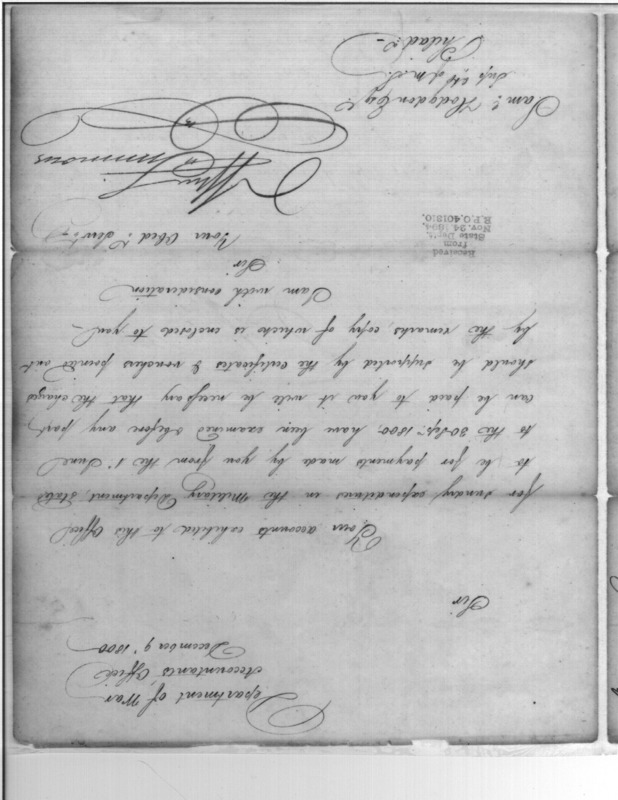 Department of War
Accountants Office
December 9th 1800
Sir
Your accounts exhibited to this Office
for sundry expenditures in the Military Department stated
to be for payments made by you from the 1st June
to the 30 Sept. 1800. have been examined & before any part
can be paid to you it will be necessary that the charges
should be supported by the certificates & vouchers pointed out
by the remarks, copy of which is inclosed to you—
I am with consideration
Sir
Your Obed. Servt.
Wm Simmons
Received
from
State Dept.
Nov. 24, 1894.
R.P.O. 401810.
Sam. Hodgdon Esq.
Philad.